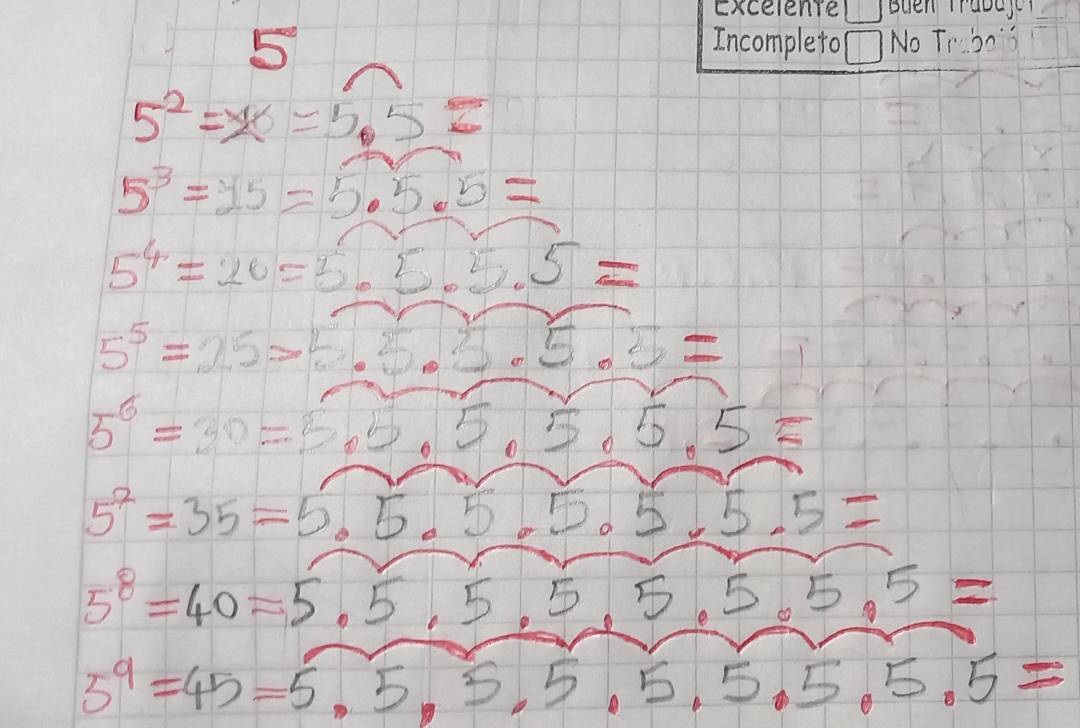 Excelente Buen Trabajo
Incompleto No Trabajó
5
5² = 10 = 5.5 =
5³ = 15 = 5.5.5 =
5⁴ = 20 = 5.5.5.5 =
5⁵ = 25 = 5.5.5.5.5 =
5⁶ = 30 = 5.5.5.5.5.5 =
5⁷ = 35 = 5.5.5.5.5.5.5 =
5⁸ = 40 = 5.5.5.5.5.5.5.5 =
5⁹ = 45 = 5.5.5.5.5.5.5.5.5 =